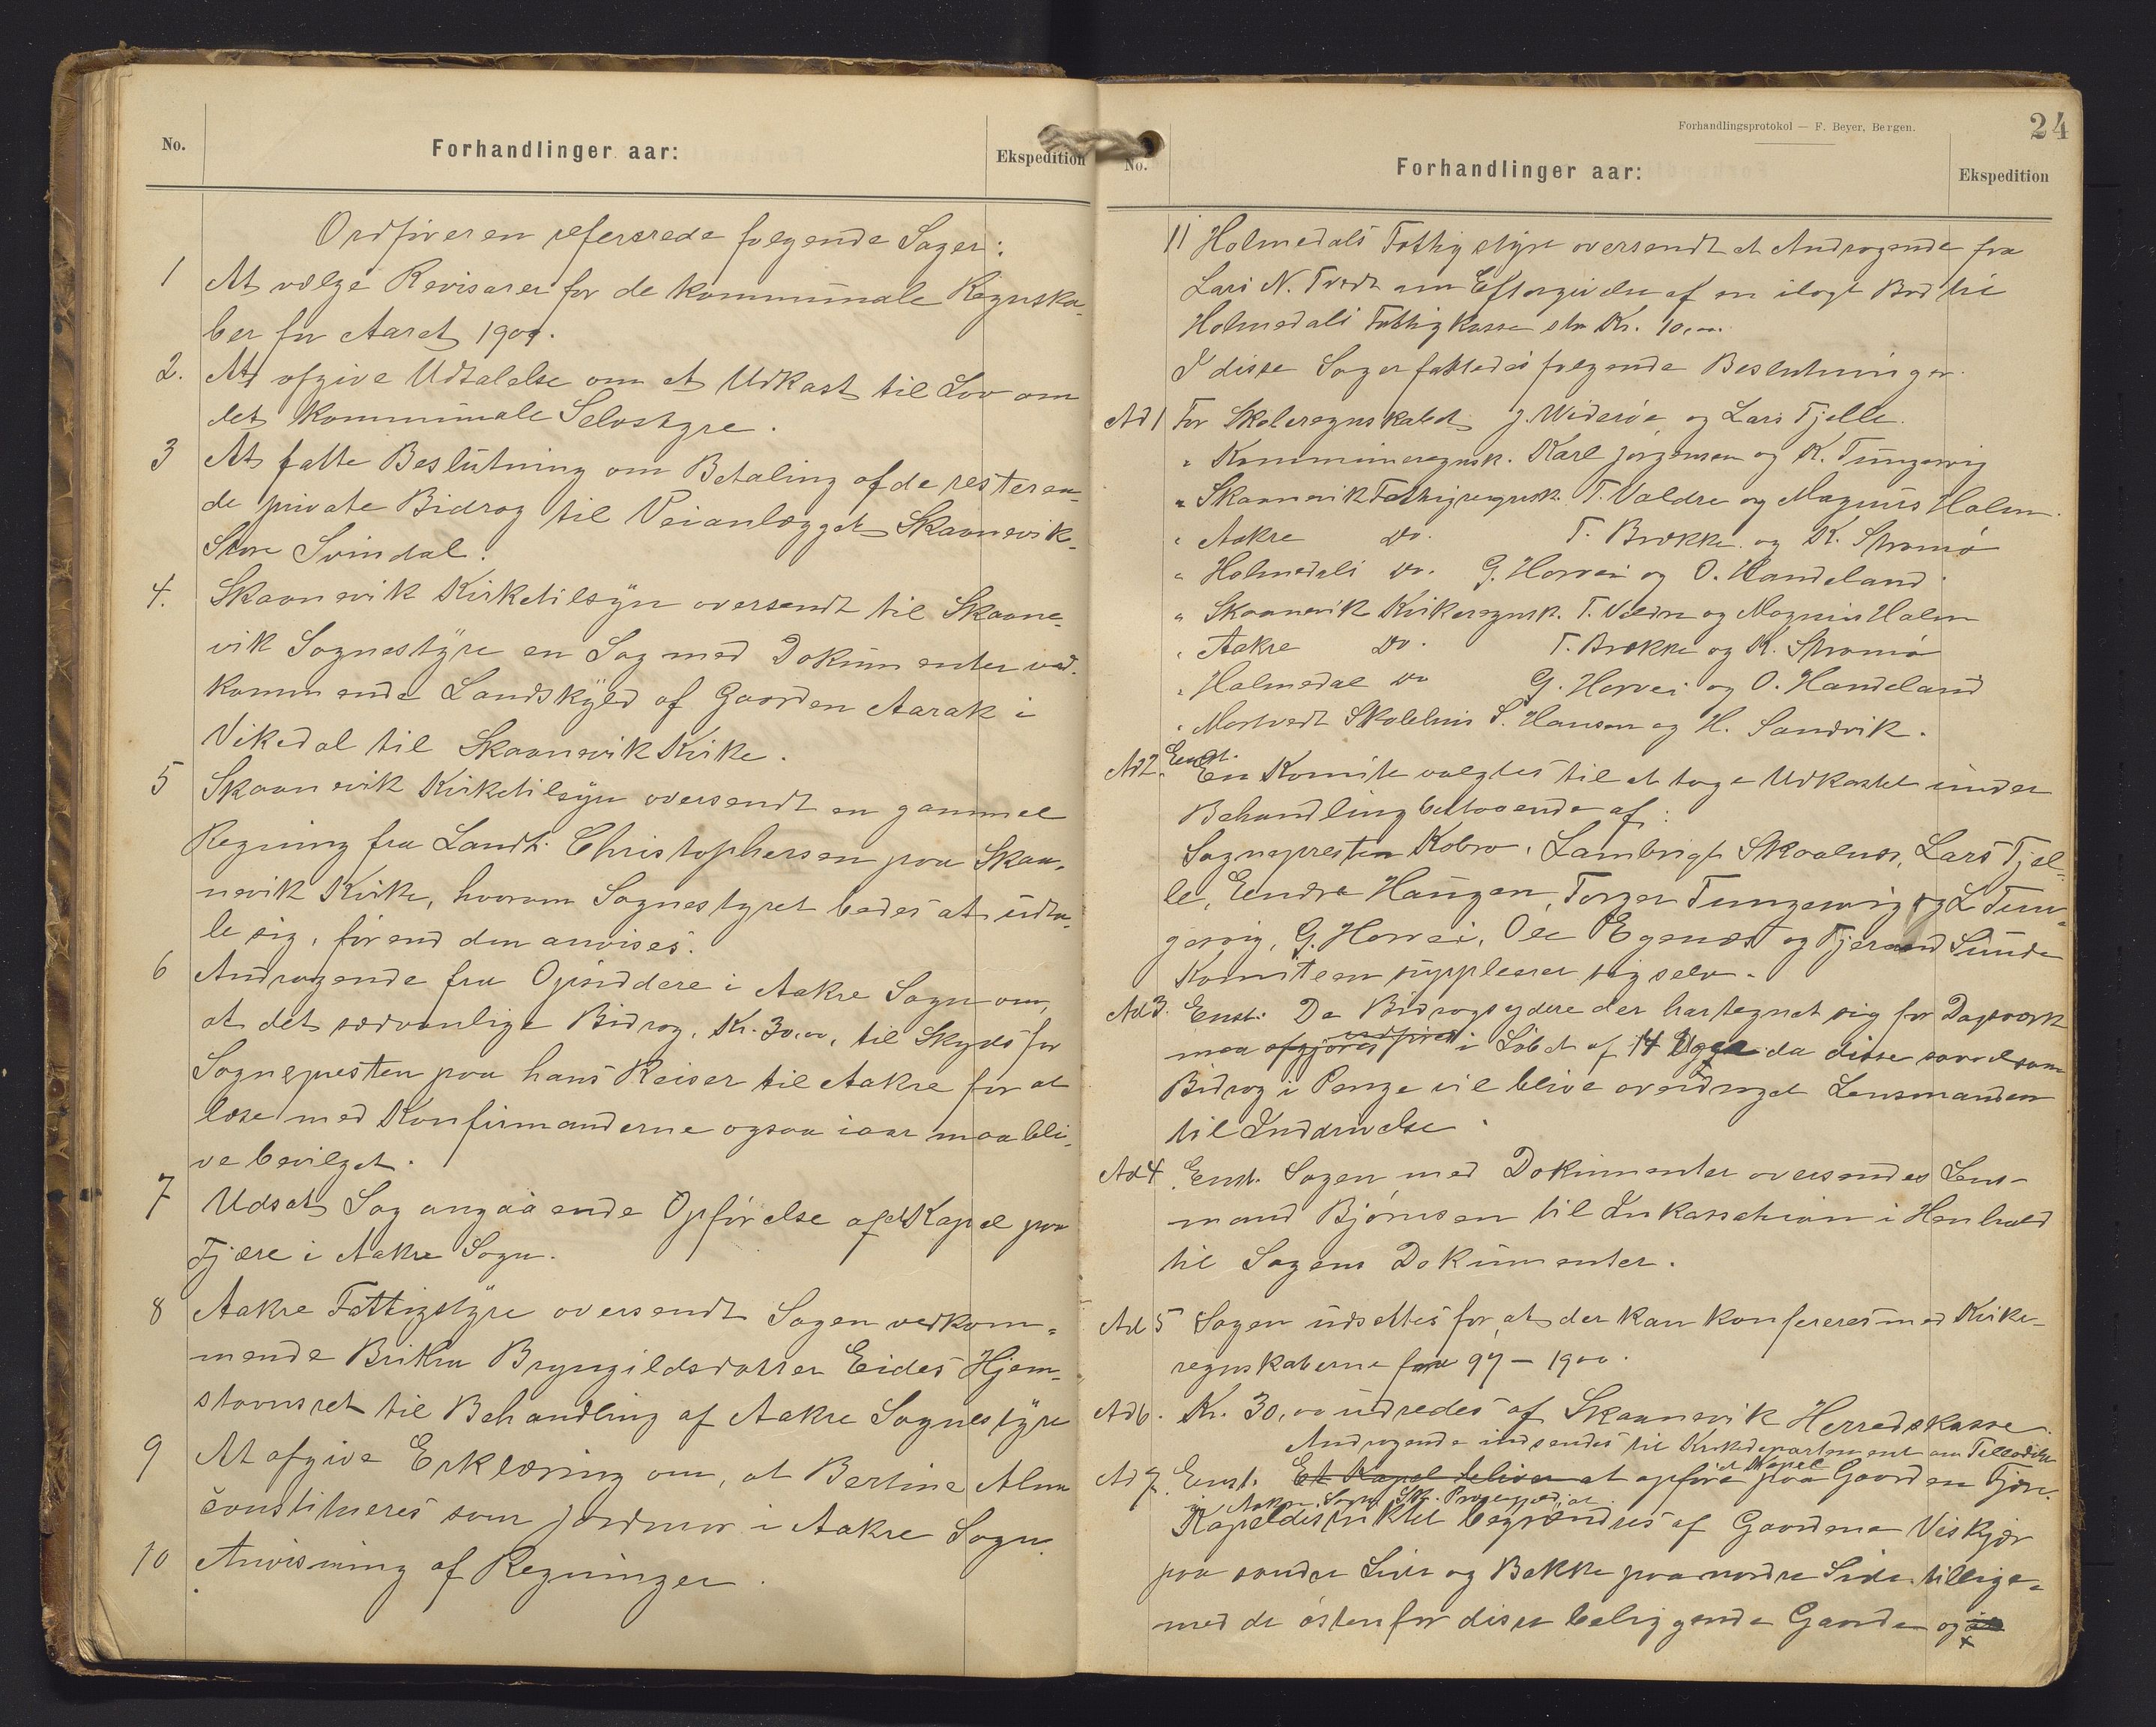 No.
Forhandlinger aar:
Ekspedition
Ordføreren refererede følgende Sager:
1 At vælge Revisorer for de kommunale Regnska-
ber for Aaret 1900.
2. At afgive Udtalelse om et Udkast til Lov om
det kommunale Selvstyre.
3 At fatte Beslutning om Betaling af de resteren-
de private Bidrag til Veianlægget Skaanevik-
Store Svindal.
4. Skaanevik Kirketilsyn oversendt til Skaane-
vik Sognestyre en Sag med Dokumenter ved-
kommende Landskyld af Gaarden Aarak i
Vikedal til Skaanevik Kirke.
5 Skaanevik Kirketilsyn oversendt en gammel
Regning fra Landh. Christophersen paa Skaa-
nevik Kirke, hvorom Sognestyret bedes at udta-
le sig, førend den anvises.
6 Andragende fra Opsiddere i Aakre Sogn om,
at det sædvanlige Bidrag, Kr. 30,00, til Skyds for
Sognepresten paa hans Reiser til Aakre for at
læse med Konfirmanderne ogsaa iaar maa bli-
ve bevilget.
7 Udsat Sag angaaende Opførelse af et Kapel paa
Fjære i Aakre Sogn.
8 Aakre Fattigstyre oversendt Sagen vedkom-
mende Bryngildsdatter Eides Hjem-
stavnsret til Behandling af Aakre Sognestyre
9 At afgive Erklæring om, at Bertine Alna
constitueres som Jordmor i Aakre Sogn.
10 Anvisning af Regninger.
Forhandlingsprotokol — F. Beyer, Bergen.
24
No.
Forhandlinger aar:
Ekspedition
11 Holmedals Fattigstyre oversendt et Andragende fra
Lars N. Tvedt om Eftergivelse af en ilagt Bod til
Holmedals Fattigkasse stor Kr. 10,00.
I disse Sager fattedes følgende Beslutninger.
Ad 1 For Skoleregnskabet J. Widerøe og Lars Fjelle.
" Kommuneregnsk. Karl Jørgensen og K. Tungesvig
" Skaanevik Fattigregnsk. T. Valdre og Magnus Holm.
" Aakre Do. T. Brække og K. Strømø
" Holmedals Do. G. Horvei og O. Handeland.
" Skaanevik Kirkeregnsk. T. Valdre og Magnus Holm
" Aakre Do. T. Brække og K. Strømø
" Holmedal Do G. Horvei og O. Handeland
" Skolehus S. Hansen og H. Sandvik.
Ad 2. Enst. En Komite valgtes til at tage Udkastet under
Behandling bestaaende af:
Sognepresten Kobro, Lambrigt Skaalnes, Lars Fjel-
le, Eendre Haugen, Torger Tungesvig og L Tun-
gesvig, G. Horvei, Ole Egenæs og Tjerand Sunde
Komiteen supplerer sig selv.
Ad 3. Enst. De Bidragsydere der har tegnet sig for Dagsværk
maa afgjøres udføres i Løbet af 14 Dage da disse saavelsom
Bidrag i Penge vil blive overdraget Lensmanden
til Inddrivelse.
Ad 4 Enst. Sagen med Dokumenter oversendes Lens-
mand Bjørnsen til Inkassation i Henhold
til Sagens Dokumenter.
Ad 5 Sagen udsættes for, at der kan konfereres med Kirke-
regnskaberne fra 97 – 1900.
Ad 6. Kr. 30,00 udredes af Skaanevik Herredskasse.
Andragende indsendes til Kirkdepartement om Tilladelse
Ad 7. Enst. Et Kapel at opføre et Kapel paa Gaarden Fjære
i Aakre Sogn Sk. Prestegjæld, at
Kapeldistriktet begrændses af Gaardene Viskjær
paa søndre Side og Bakke paa nordre Side tillige-
med de østenfor disse beliggende Gaarde og